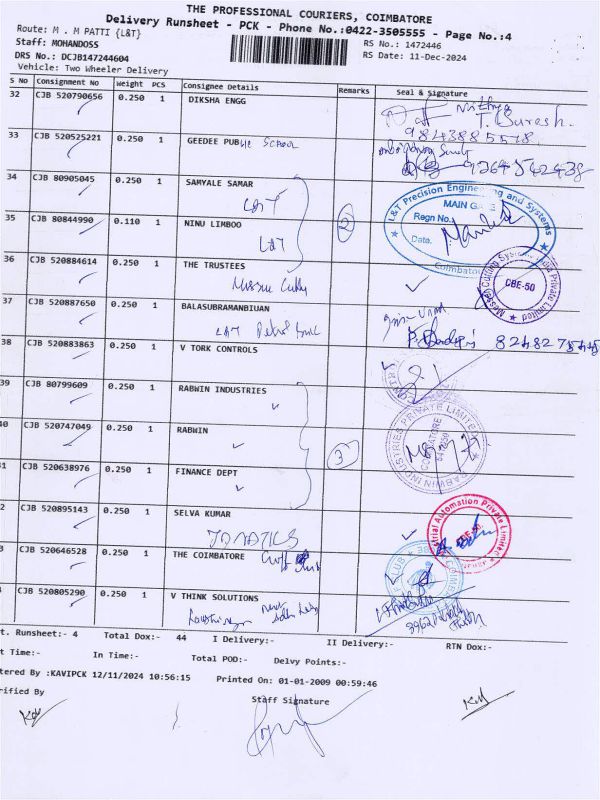 THE PROFESSIONAL COURIERS, COIMBATORE
Delivery Runsheet - PCK - Phone No.:0422-3505555 - Page No.:4
Route: M . M PATTI {L&T}
RS No.: 1472446
Staff: MOHANDOSS
RS Date: 11-Dec-2024
DRS No.: DCJB147244604
Vehicle: Two Wheeler Delivery
S No Consignment No Weight PCS Consignee Details Remarks Seal & Signature
32 CJB 520790656 0.250 1 DIKSHA ENGG
T. Suresh.
9843885578
33 CJB 520525221 0.250 1 GEEDEE PUBLIC School
9264542438
34 CJB 80905045 0.250 1 SAMYALE SAMAR
L&T
L&T Precision Engineering and Systems
MAIN GATE
Regn No.
Date.
Coimbatore
35 CJB 80844990 0.110 1 NINU LIMBOO 2
L&T
36 CJB 520884614 0.250 1 THE TRUSTEES
CBE-50
37 CJB 520887650 0.250 1 BALASUBRAMANBIUAN
L&T Petrol Bunk
8248275445
38 CJB 520883863 0.250 1 V TORK CONTROLS
39 CJB 80799609 0.250 1 RABWIN INDUSTRIES
RABWIN INDUSTRIES PRIVATE LIMITED
COIMBATORE
40 CJB 520747049 0.250 1 RABWIN 3
41 CJB 520638976 0.250 1 FINANCE DEPT
42 CJB 520895143 0.250 1 SELVA KUMAR
Automation Private Limited
CBE-50
43 CJB 520646528 0.250 1 THE COIMBATORE Golf Club
44 CJB 520805290 0.250 1 V THINK SOLUTIONS
t. Runsheet:- 4 Total Dox:- 44 I Delivery:- II Delivery:- RTN Dox:-
t Time:- In Time:- Total POD:- Delvy Points:-
tered By :KAVIPCK 12/11/2024 10:56:15 Printed On: 01-01-2009 00:59:46
rified By Staff Signature